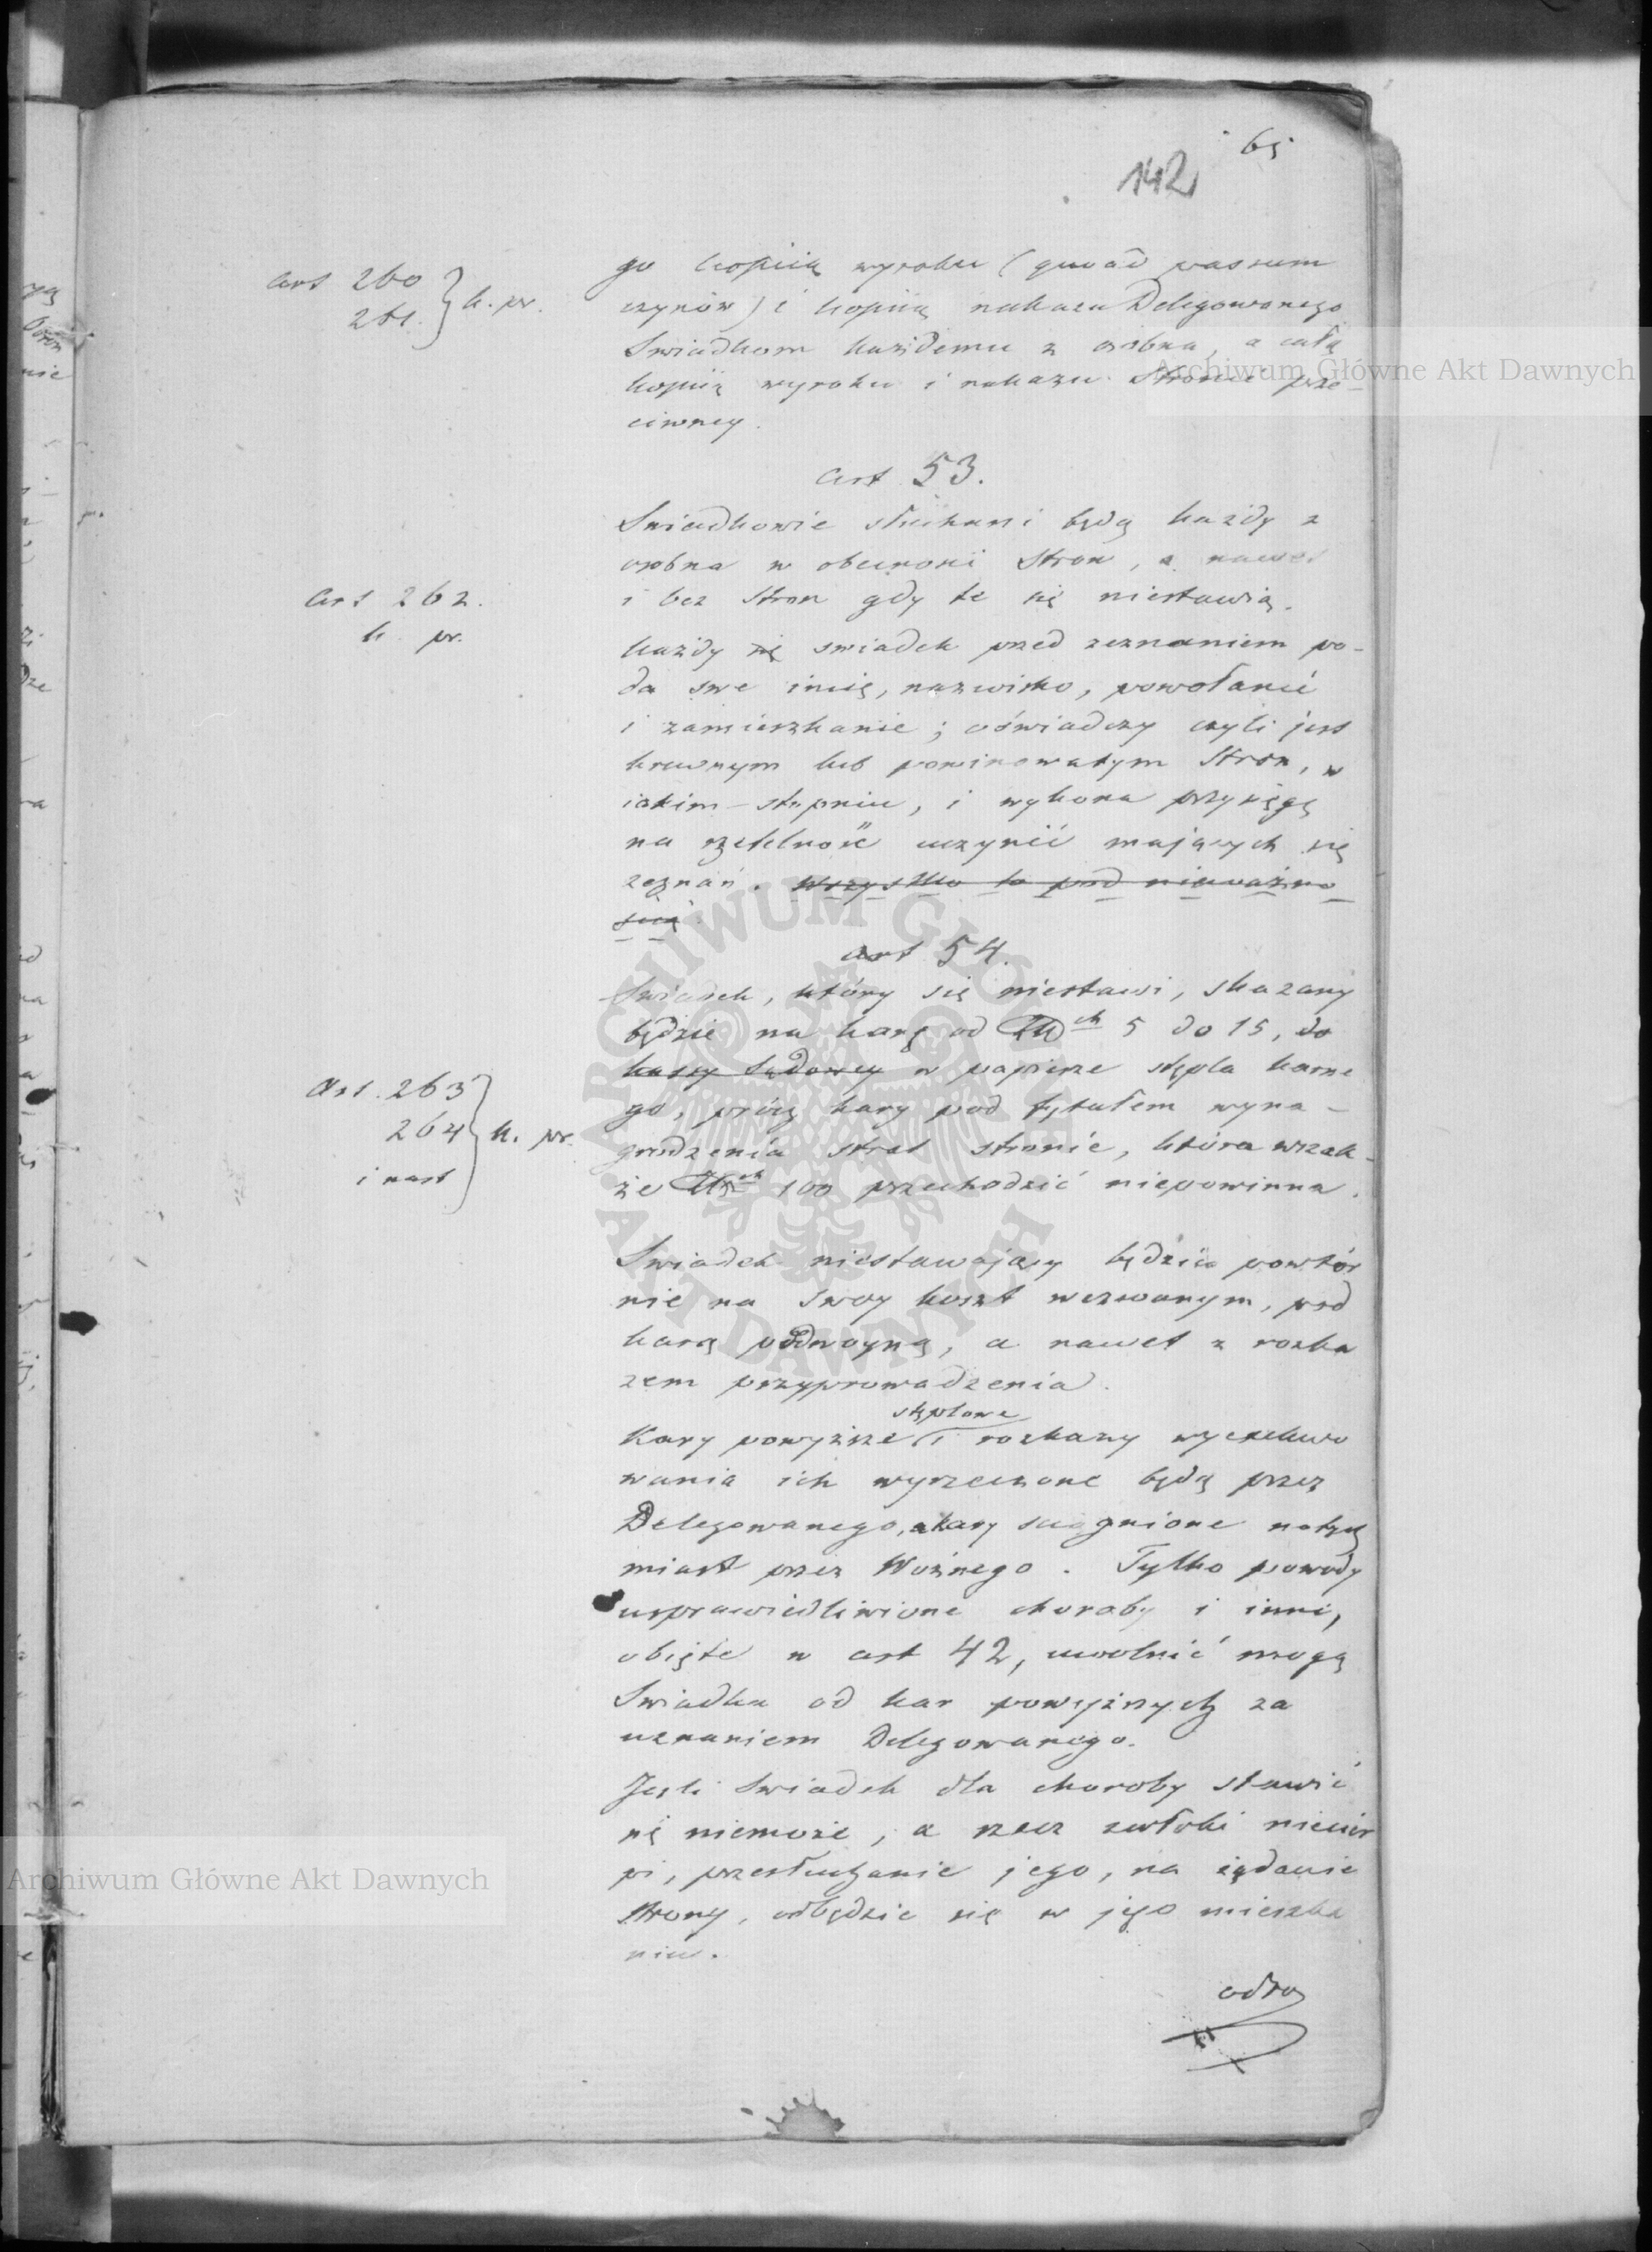 65
142
art 260
261. } k. pr.
go kopiią wyroku (quoad passum
czynów) i kopiią nakazu Delegowanego
Swiadkom każdemu z osobna, a całą
kopiią wyroku i nakazu Stronie prze-
ciwney.
art 53.
Swiadkowie słuchani będą każdy z
osobna w obecności Stron, a nawet
i bez Stron gdy te się niestawią.
art 262.
k. pr.
każdy się swiadek przed zeznaniem po-
da swe imię, nazwisko, powołanie
i zamieszkanie; oświadczy czyli jest
krewnym lub powinowatym Stron, w
iakim-stopniu, i wykona przysięgę
na rzetelność uczynić mających się
zeznań. wszystko to pod nieważno
scią.
art 54.
Swiadek, który się niestawi, skazany
będzie na karę od 5 do 15, do
kassy Sądowey w papierze stępla karne
go, prócz kary pod tytułem wyna-
grodzenia strat stronie, która wszak-
że 100 przechodzić niepowinna.
Art. 263
264 } k. pr.
i nast
Swiadek niestawaiący będzie powtór
nie na swoy koszt wezwanym, pod
karą podwoyną, a nawet z rozka
zem przyprowadzenia.
stęplowe
Kary powyższe i rozkazy wyexekwo
wania ich wyrzeczone będą przez
Delegowanego, a kary sciągnione natych
miast przez Woźnego. Tylko powody
usprawiedliwione choroby i inne,
obięte w art 42, uwolnić mogą
Swiadka od kar powyższych za
uznaniem Delegowanego.
Jeśli Swiadek dla choroby stawić
się niemoże, a rzecz zwłoki niecier
pi, przesłuchanie jego, na żądanie
strony, odbędzie się w jego mieszka
niu.
Archiwum Główne Akt Dawnych
Archiwum Główne Akt Dawnych
ARCHIWUM GŁÓWNE AKT DAWNYCH